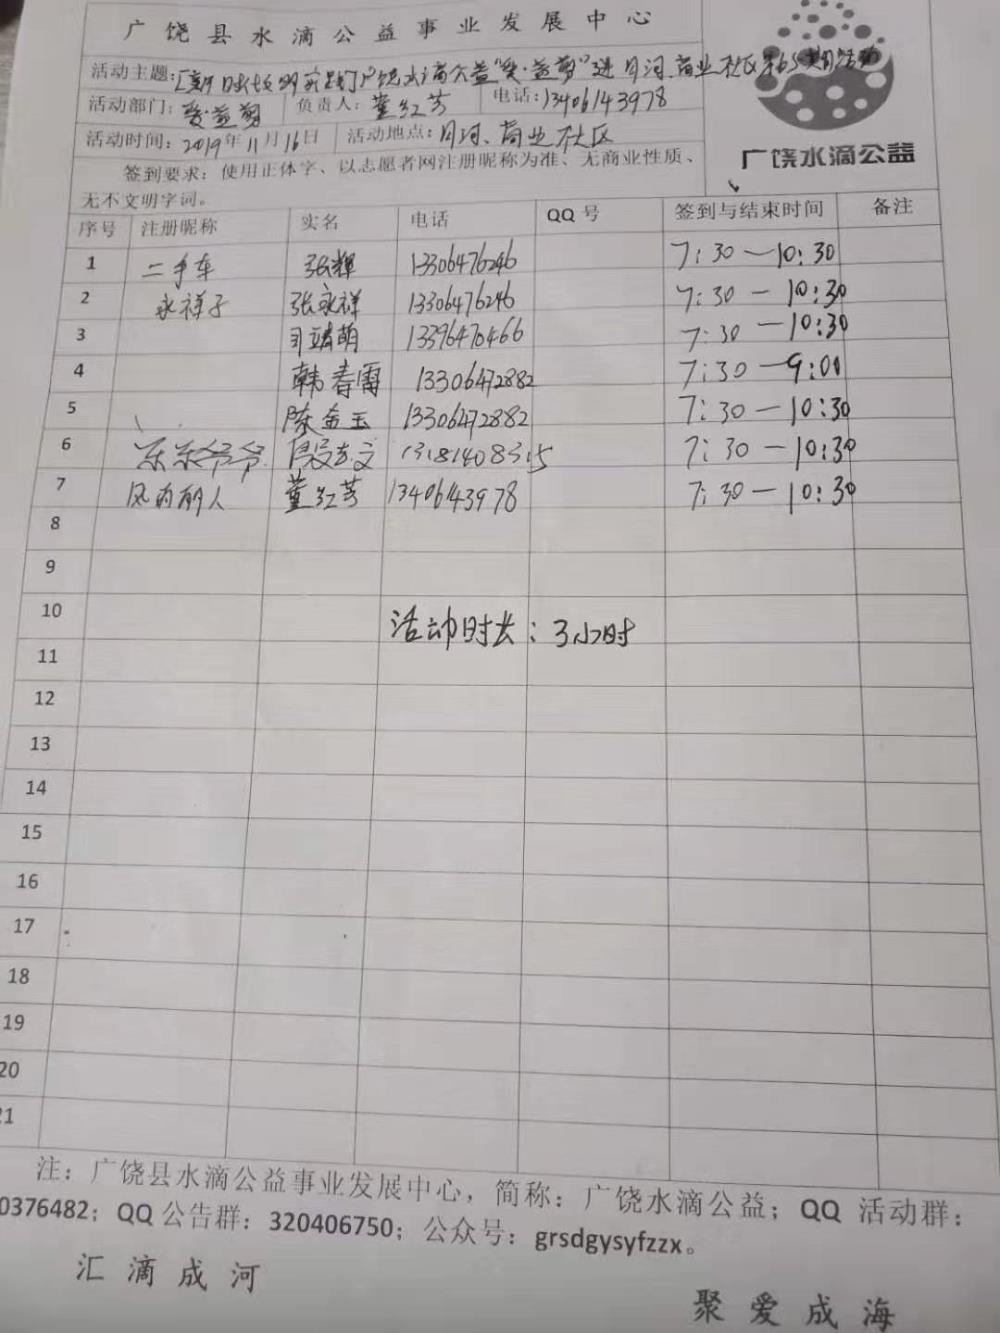 广饶县水滴公益事业发展中心
活动主题: 广饶水滴公益"爱·益剪"进月河、商业社区第65期活动
活动部门: 爱·益剪 负责人: 董红芳 电话: 13406143978
活动时间: 2019年11月16日 活动地点: 月河、商业社区
广饶水滴公益
签到要求: 使用正体字、以志愿者网注册昵称为准、无商业性质、
无不文明字词。
序号 注册昵称 实名 电话 QQ号 签到与结束时间 备注
1 二手车 张辉 13306476246 7:30—10:30
2 永祥子 张永祥 13306476246 7:30—10:30
3 司靖萌 13396470466 7:30—10:30
4 韩春雷 13306472882 7:30—9:00
5 陈金玉 13306472882 7:30—10:30
6 东东爷爷 段志文 13181408315 7:30—10:30
7 风雨的人 董红芳 13406143978 7:30—10:30
8
9
10 活动时长: 3小时
11
12
13
14
15
16
17
18
19
20
21
注: 广饶县水滴公益事业发展中心, 简称: 广饶水滴公益; QQ 活动群:
0376482; QQ公告群: 320406750; 公众号: grsdgysyfzzx。
汇滴成河
聚爱成海